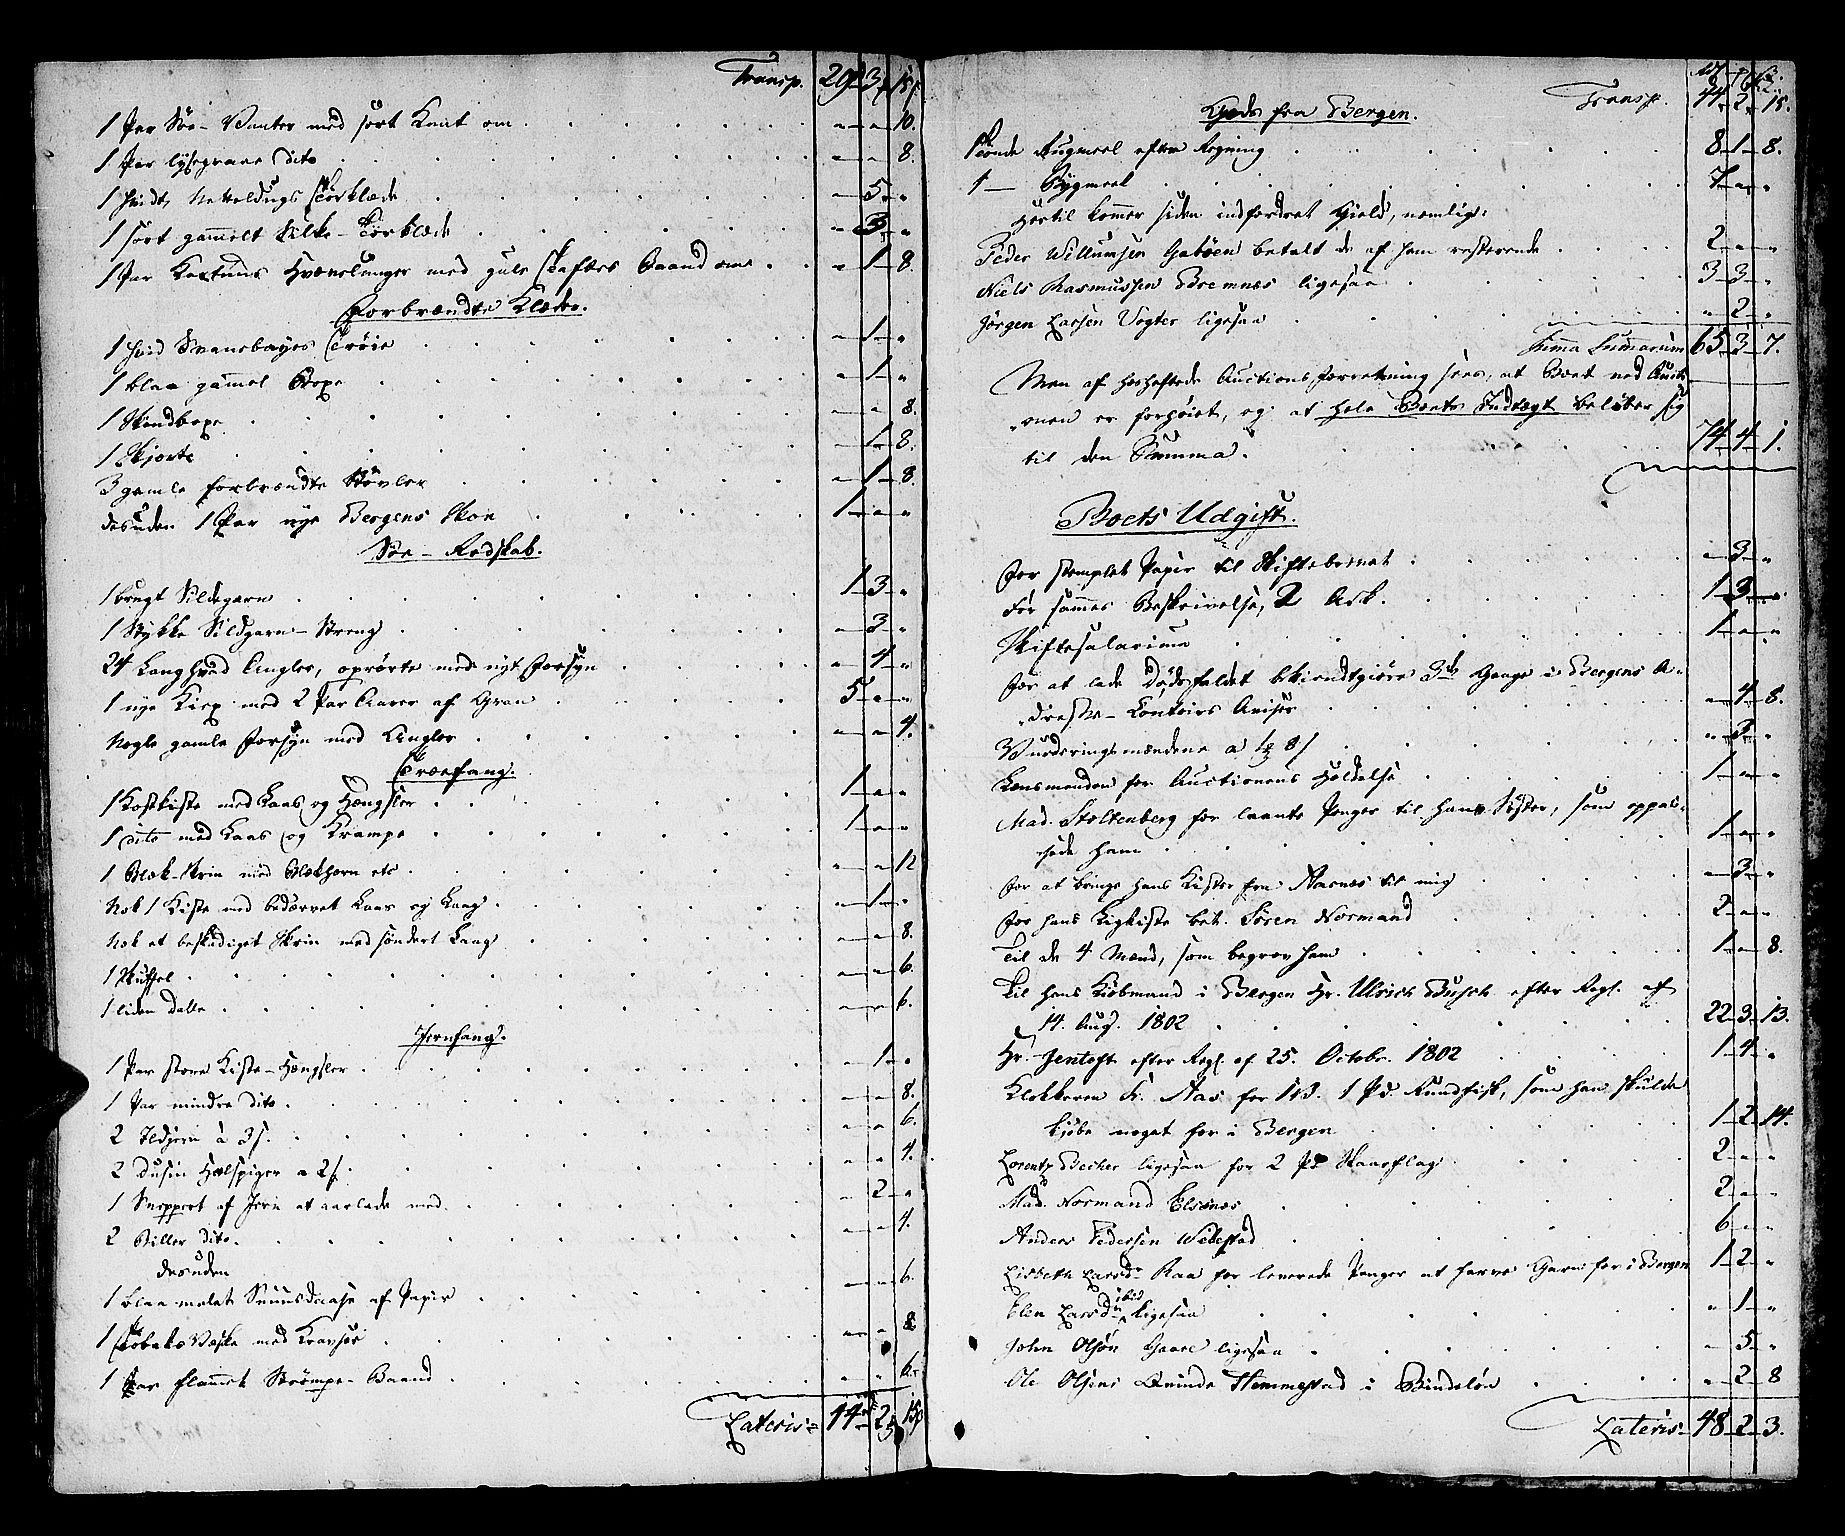 Transp. 29 3 15
1 Par Söe-Vanter med sort Kant om . . . " " 10.
1 Par lysegraae dito . . . " " 8.
1 hvidt Netteldugs Törklæde . . . " 5 "
1 sort gammelt Silke-Törklæde . . . " 3 "
1 Par Kattuns med gule Baand om . . " 1 8.
Forbrændte Klæder.
1 hvid Svanebøyes Tröie . . . " 1 "
1 blaa gammel Boxe . . . " 1 "
1 Skindboxe . . . " " 8.
1 Skjorte . . . " 1 8.
3 gamle forbrændte Støvler . . . " 1 8.
desuden 1 Par nye Bergens Skoe . . . 1 " "
Söe-Redskab.
1 brugt Sildegarn . . . 1 3 "
1 Stykke Sildgarn-Streng . . . " 3 "
24 Angler, oprørte med nyt Forsyn . . . " 4 "
1 nye Kiex med 2 Par Aarer af Gran . . . 5 " "
Nogle gamle Forsyn med Angler . . . " " 4.
Træefang.
1 Kostkiste med Laas og Hængsler . . . 1 " "
1 dito med Laas og Krampe . . . 1 " "
1 Blæk-Skrin med Blækhorn etc . . . " " 12
Nok 1 Kiste med bedærvet Laas og Laag . . . " 1 "
Nok et beskadiget Skrin med söndert Laag . . . " " 8.
1 Skuffel . . . " " 6.
1 liden Dalle . . . " " 6.
Jernfang.
1 Par store Kiste-Hængsler . . . " 1 "
1 Par mindre dito . . . " " 8.
2 Ildjern à 3 s. . . . " " 6.
2 Dusin Hælspiger a 2 s. . . . " " 4.
1 af Jern at med . . . " 2 "
2 Biller dito . . . " " 4.
desuden
1 blaa malet Snuusdaase af Papir . . . " " 6.
1 Tobaks Veske med . . . " " 8
1 Par flammet Strömpe-Baand . . . " " 6.
Lateris 14 2 15
Transp. 44 2 15.
Gods fra Bergen.
1 Tönde Rugmeel efter Regning . . . 8 1 8.
1 — Bygmeel . . . 7 " "
Hertil kommer siden indfordret Gield, nemlig:
Peder Willumsen Gaböen betalt de af ham resterende . . . 2 " "
Niels Rasmussen Bremnes ligesaa . . . 3 3 "
Jörgen Larsen Vogter ligesaa . . . " 2 "
Summa Summarum 65 3 7.
Men af heshæftede Auctionsforretning sees, at Boet ved Aucti-
onen er forhöiet, og at hele Boets Indtægt belöber sig
til den Summa . . . 74 4 1.
Boets Udgift.
For stemplet Papir til Skiftebrevet . . . " 3 "
For sammes Beskrivelse, 2 Ark. . . . 1 3 "
Skiftesalarium . . . 1 " "
For at lade Dödsfaldet bekiendtgiöre 3de Gange i Bergens A-
dresse-Contoirs Aviser . . . " 4 8.
Vurderingsmændene a 8 s . . . " 3 "
Lensmanden for Auctionens Holdelse . . . 1 " "
Mad. Stoltenberg for laante Penger til hans Söster, som oppas-
sede ham . . . 1 " "
For at bringe hans Kister fra Aarnæs til mig . . . " 3 "
For hans Ligkiste bet. Sören Normand . . . 2 " "
Til de 4 Mænd, som begrov ham . . . 1 " 8.
Til hans Kiöbmand i Bergen Hr. Ulrich Busch efter Regl. af
14. Aug. 1802 . . . 22 3 13.
Hr. Jentoft efter Regl. af 25. Octobr. 1802 . . . 1 4 "
Klokkeren K. Aas for 1 Pd. Rundfisk, som han skulde
kjöbe noget for i Bergen . . . 1 2 14.
Lorentz Becher ligesaa for 2 Pd Skaarflag . . . 2 " "
Mad. Normand Elsenæs . . . 2 " "
Anders Pedersen Wibestad . . . 6 " "
Lisbeth Larsd. Raa for leverede Penger at farve Garn for i Bergen 1 2 "
Elen Larsd. ibid ligesaa . . . " 1 "
John Olsön Gaare ligesaa . . . " 5 "
Ole Olsens Qvinde Hemmestad i . . . " 2 8
Lateris 48 2 3.